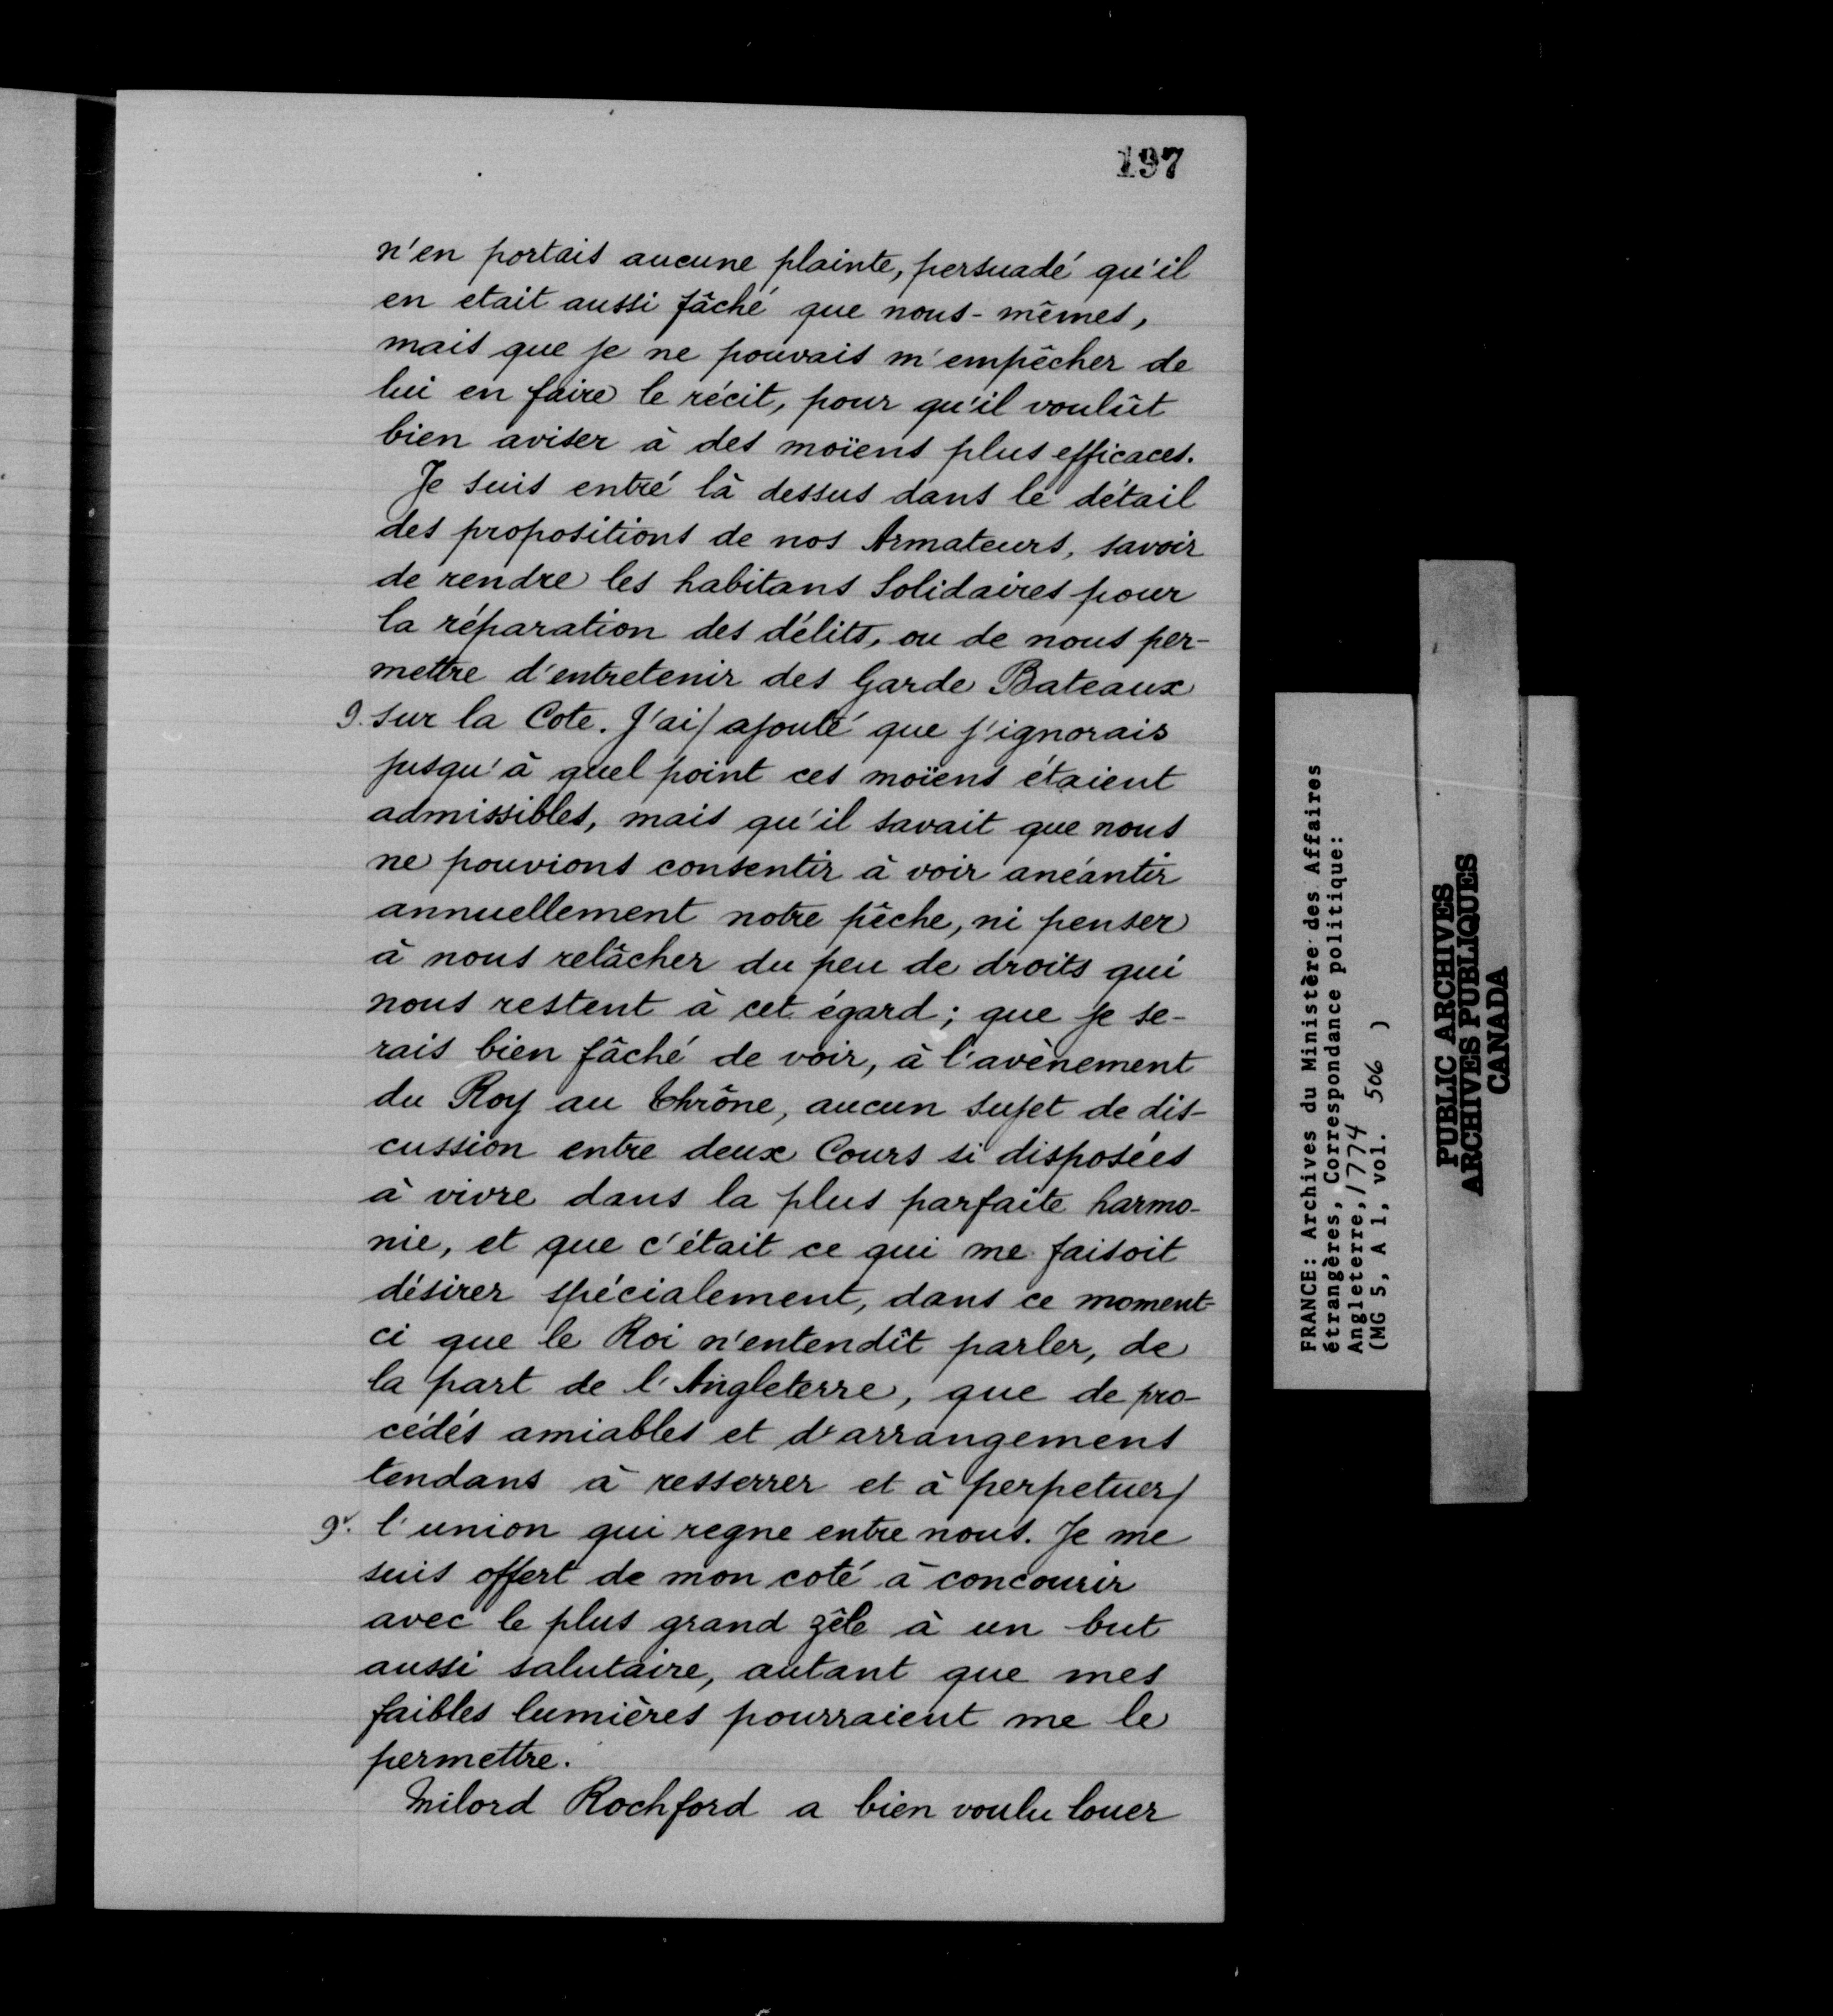 197
n'en portais aucune plainte, persuadé qu'il
en etait aussi fâché que nous-mêmes,
mais que je ne pouvais m'empêcher de
lui en faire le récit, pour qu'il voulût
bien aviser à des moïens plus efficaces.
Je suis entré là dessus dans le détail
des propositions de nos Armateurs, savoir
de rendre les habitans Solidaires pour
la réparation des délits, ou de nous per-
mettre d'entretenir des Garde Bateaux
9. sur la Cote. J'ai/ajouté que j'ignorais
jusqu'à quel point ces moïens étaient
admissibles, mais qu'il savait que nous
ne pouvions consentir à voir anéantir
annuellement notre pêche, ni penser
à nous relâcher du peu de droits qui
nous restent à cet égard; que je se-
rais bien fâché de voir, à l'avènement
du Roy au Thrône, aucun sujet de dis-
cussion entre deux Cours si disposées
à vivre dans la plus parfaite harmo-
nie, et que c'était ce qui me faisoit
désirer spécialement, dans ce moment-
ci que le Roi n'entendît parler, de
la part de l'Angleterre, que de pro-
cédés amiables et d'arrangemens
tendans à resserrer et à perpetuer/
9v. l'union qui regne entre nous. Je me
suis offert de mon coté à concourir
avec le plus grand zêle à un but
aussi salutaire, autant que mes
faibles lumières pourraient me le
permettre.
Milord Rochford a bien voulu louer
FRANCE: Archives du Ministère des Affaires
étrangères, Correspondance politique:
Angleterre, 1774
(MG 5, A 1, vol. 506 )
PUBLIC ARCHIVES
ARCHIVES PUBLIQUES
CANADA